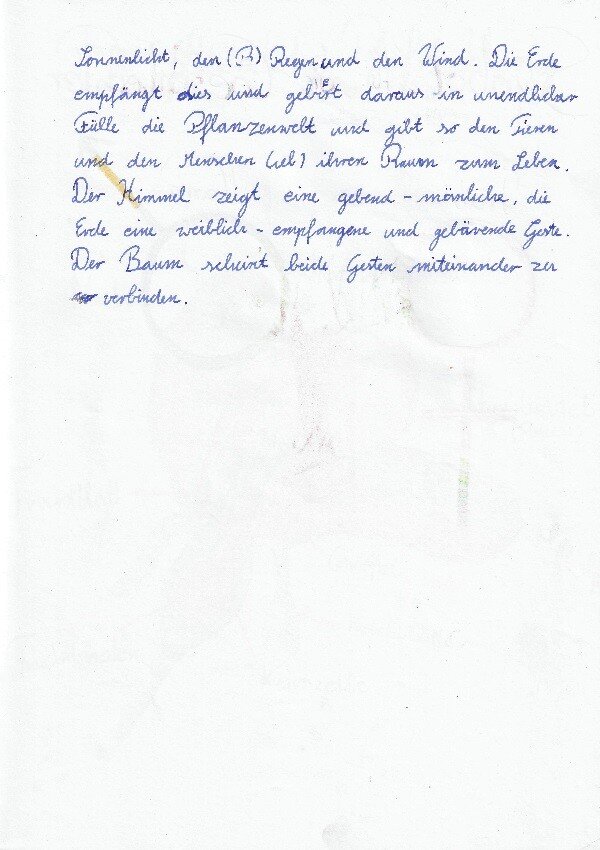 Sonnenlicht, den (R) Regen und den Wind. Die Erde
empfängt dies und gebiert daraus in unendlicher
Fülle die Pflanzenwelt und gibt so den Tieren
und den Menschen (iel) ihren Raum zum Leben.
Der Himmel zeigt eine gebend-männliche, die
Erde eine weiblich-empfangene und gebärende Geste.
Der Baum scheint beide Gesten miteinander zu
verbinden.